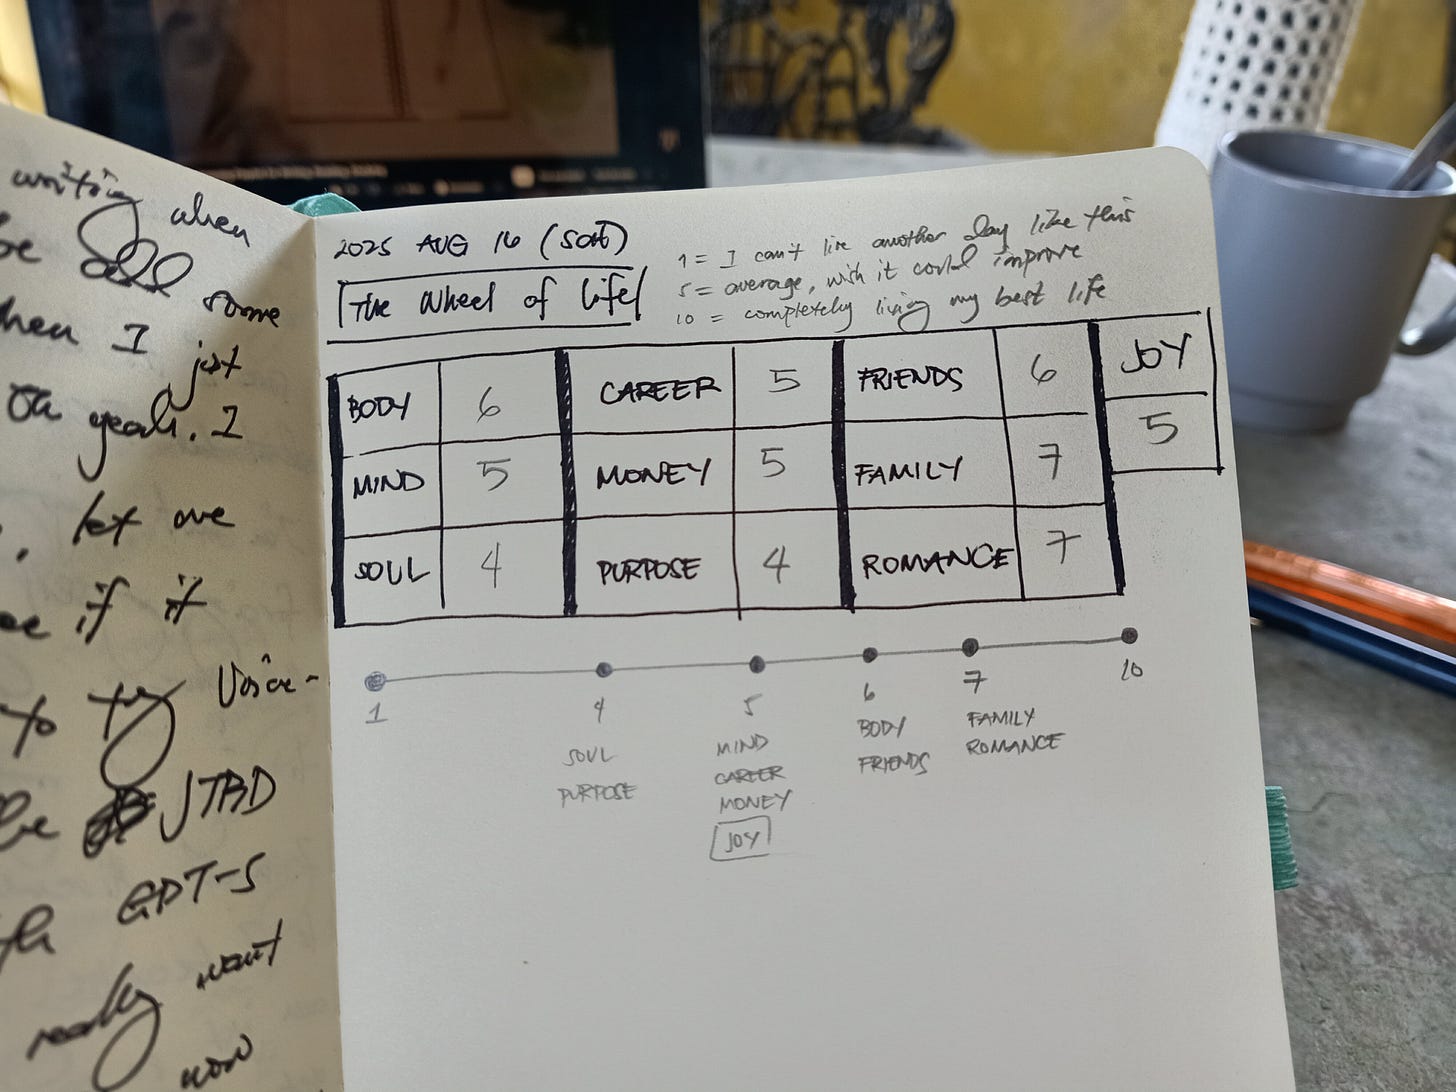 writing when
be all some
when I just
Oh yeah. I
let me
see if it
to try Voice-
the JTBD
with GPT-5
really want
now
2025 AUG 16 (Sat)
The Wheel of Life
1 = I can't live another day like this
5 = average, wish it could improve
10 = completely living my best life
BODY 6 CAREER 5 FRIENDS 6 JOY
MIND 5 MONEY 5 FAMILY 7 5
SOUL 4 PURPOSE 4 ROMANCE 7
1 4 5 6 7 10
SOUL MIND BODY FAMILY
PURPOSE CAREER FRIENDS ROMANCE
MONEY
JOY